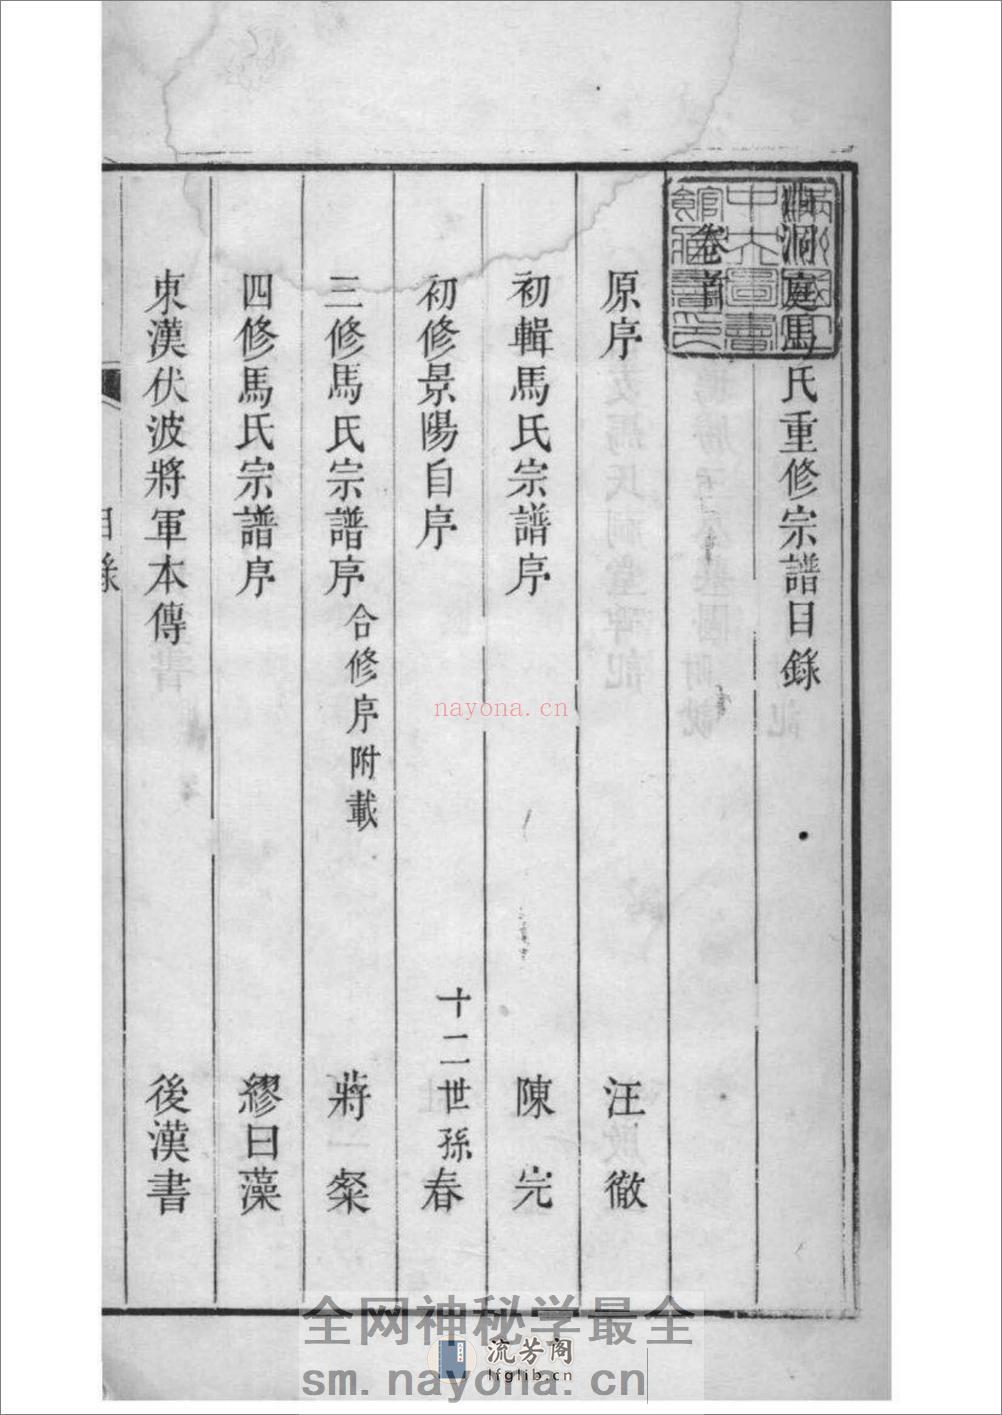 洞庭馬氏重修宗譜目錄
卷首
原序 汪徹
初輯馬氏宗譜序 陳完
初修景陽自序 十二世孫春
三修馬氏宗譜序 合修序附載 蔣燦
四修馬氏宗譜序 繆曰藻
東漢伏波將軍本傳 後漢書
目錄
nayona.cn
全网神秘学最全
流芳阁
lfglib.cn
sm.nayona.cn